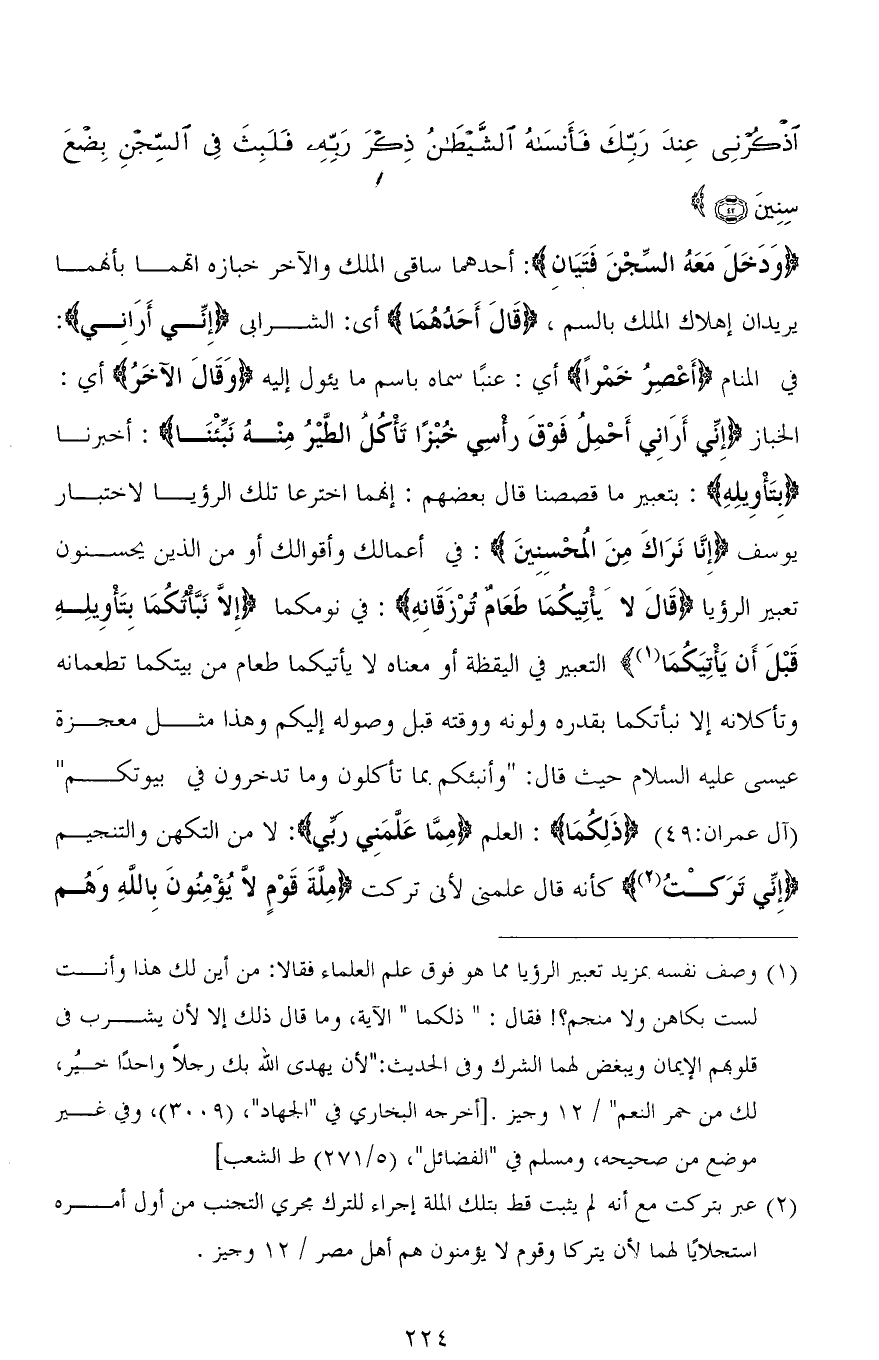 ٱذۡكُرۡنِى عِندَ رَبِّكَ فَأَنسَىٰهُ ٱلشَّيۡطَٰنُ ذِكۡرَ رَبِّهِۦ فَلَبِثَ فِى ٱلسِّجۡنِ بِضۡعَ
سِنِينَ ٤٢ ﴾
﴿وَدَخَلَ مَعَهُ السِّجْنَ فَتَيَانِ﴾: أحدهما ساقى الملك والآخر خبازه اتهما بأنهما
يريدان إهلاك الملك بالسم ، ﴿قَالَ أَحَدُهُمَا ﴾ أى: الشرابى ﴿إِنِّي أَرَانِي﴾:
في المنام ﴿أَعْصِرُ خَمْراً﴾ أي : عنبًا سماه باسم ما يئول إليه ﴿وَقَالَ الآخَرُ﴾ أي :
الخباز ﴿إِنِّي أَرَاني أَحْمِلُ فَوْقَ رأْسِي خُبْزًا تَأْكُلُ الطَّيْرُ مِنْهُ نَبِّئْنَا﴾ : أخبرنا
﴿بِتَأْوِيلِهِ﴾ : بتعبير ما قصصنا قال بعضهم : إنهما اخترعا تلك الرؤيا لاختبار
يوسف ﴿إِنَّا نَرَاكَ مِنَ الْمُحْسِنِينَ ﴾ : في أعمالك وأقوالك أو من الذين يحسنون
تعبير الرؤيا ﴿قَالَ لا يَأْتِيكُمَا طَعَامٌ تُرْزَقَانِهِ﴾ : في نومكما ﴿إِلاَّ نَبَّأْتُكُمَا بِتَأْوِيلِهِ
قَبْلَ أَن يَأْتِيَكُمَا(١)﴾ التعبير في اليقظة أو معناه لا يأتيكما طعام من بيتكما تطعمانه
وتأكلانه إلا نبأتكما بقدره ولونه ووقته قبل وصوله إليكم وهذا مثل معجزة
عيسى عليه السلام حيث قال: "وأنبئكم بما تأكلون وما تدخرون في بيوتكم"
(آل عمران:٤٩) ﴿ذَلِكُمَا﴾ : العلم ﴿مِمَّا عَلَّمَنِي رَبِّي﴾: لا من التكهن والتنجيم
﴿إِنِّي تَرَكْتُ(٢)﴾ كأنه قال علمنى لأنى تركت ﴿مِلَّةَ قَوْمٍ لاَّ يُؤْمِنُونَ بِاللَّهِ وَهُم
(١) وصف نفسه بمزيد تعبير الرؤيا مما هو فوق علم العلماء فقالا: من أين لك هذا وأنت
لست بكاهن ولا منجم؟! فقال : " ذلكما " الآية، وما قال ذلك إلا لأن يشرب فى
قلوبهم الإيمان ويبغض لهما الشرك وفى الحديث:"لأن يهدى الله بك رجلاً واحدًا خيُر،
لك من حمر النعم" / ١٢ وجيز .[أخرجه البخاري في "الجهاد"، (٣٠٠٩)، وفي غير
موضع من صحيحه، ومسلم في "الفضائل"، (٢٧١/٥) ط الشعب]
(٢) عبر بتركت مع أنه لم يثبت قط بتلك الملة إجراء للترك مجري التجنب من أول أمره
استجلابًا لهما لأن يتركا وقوم لا يؤمنون هم أهل مصر / ١٢ وجيز .
٢٢٤